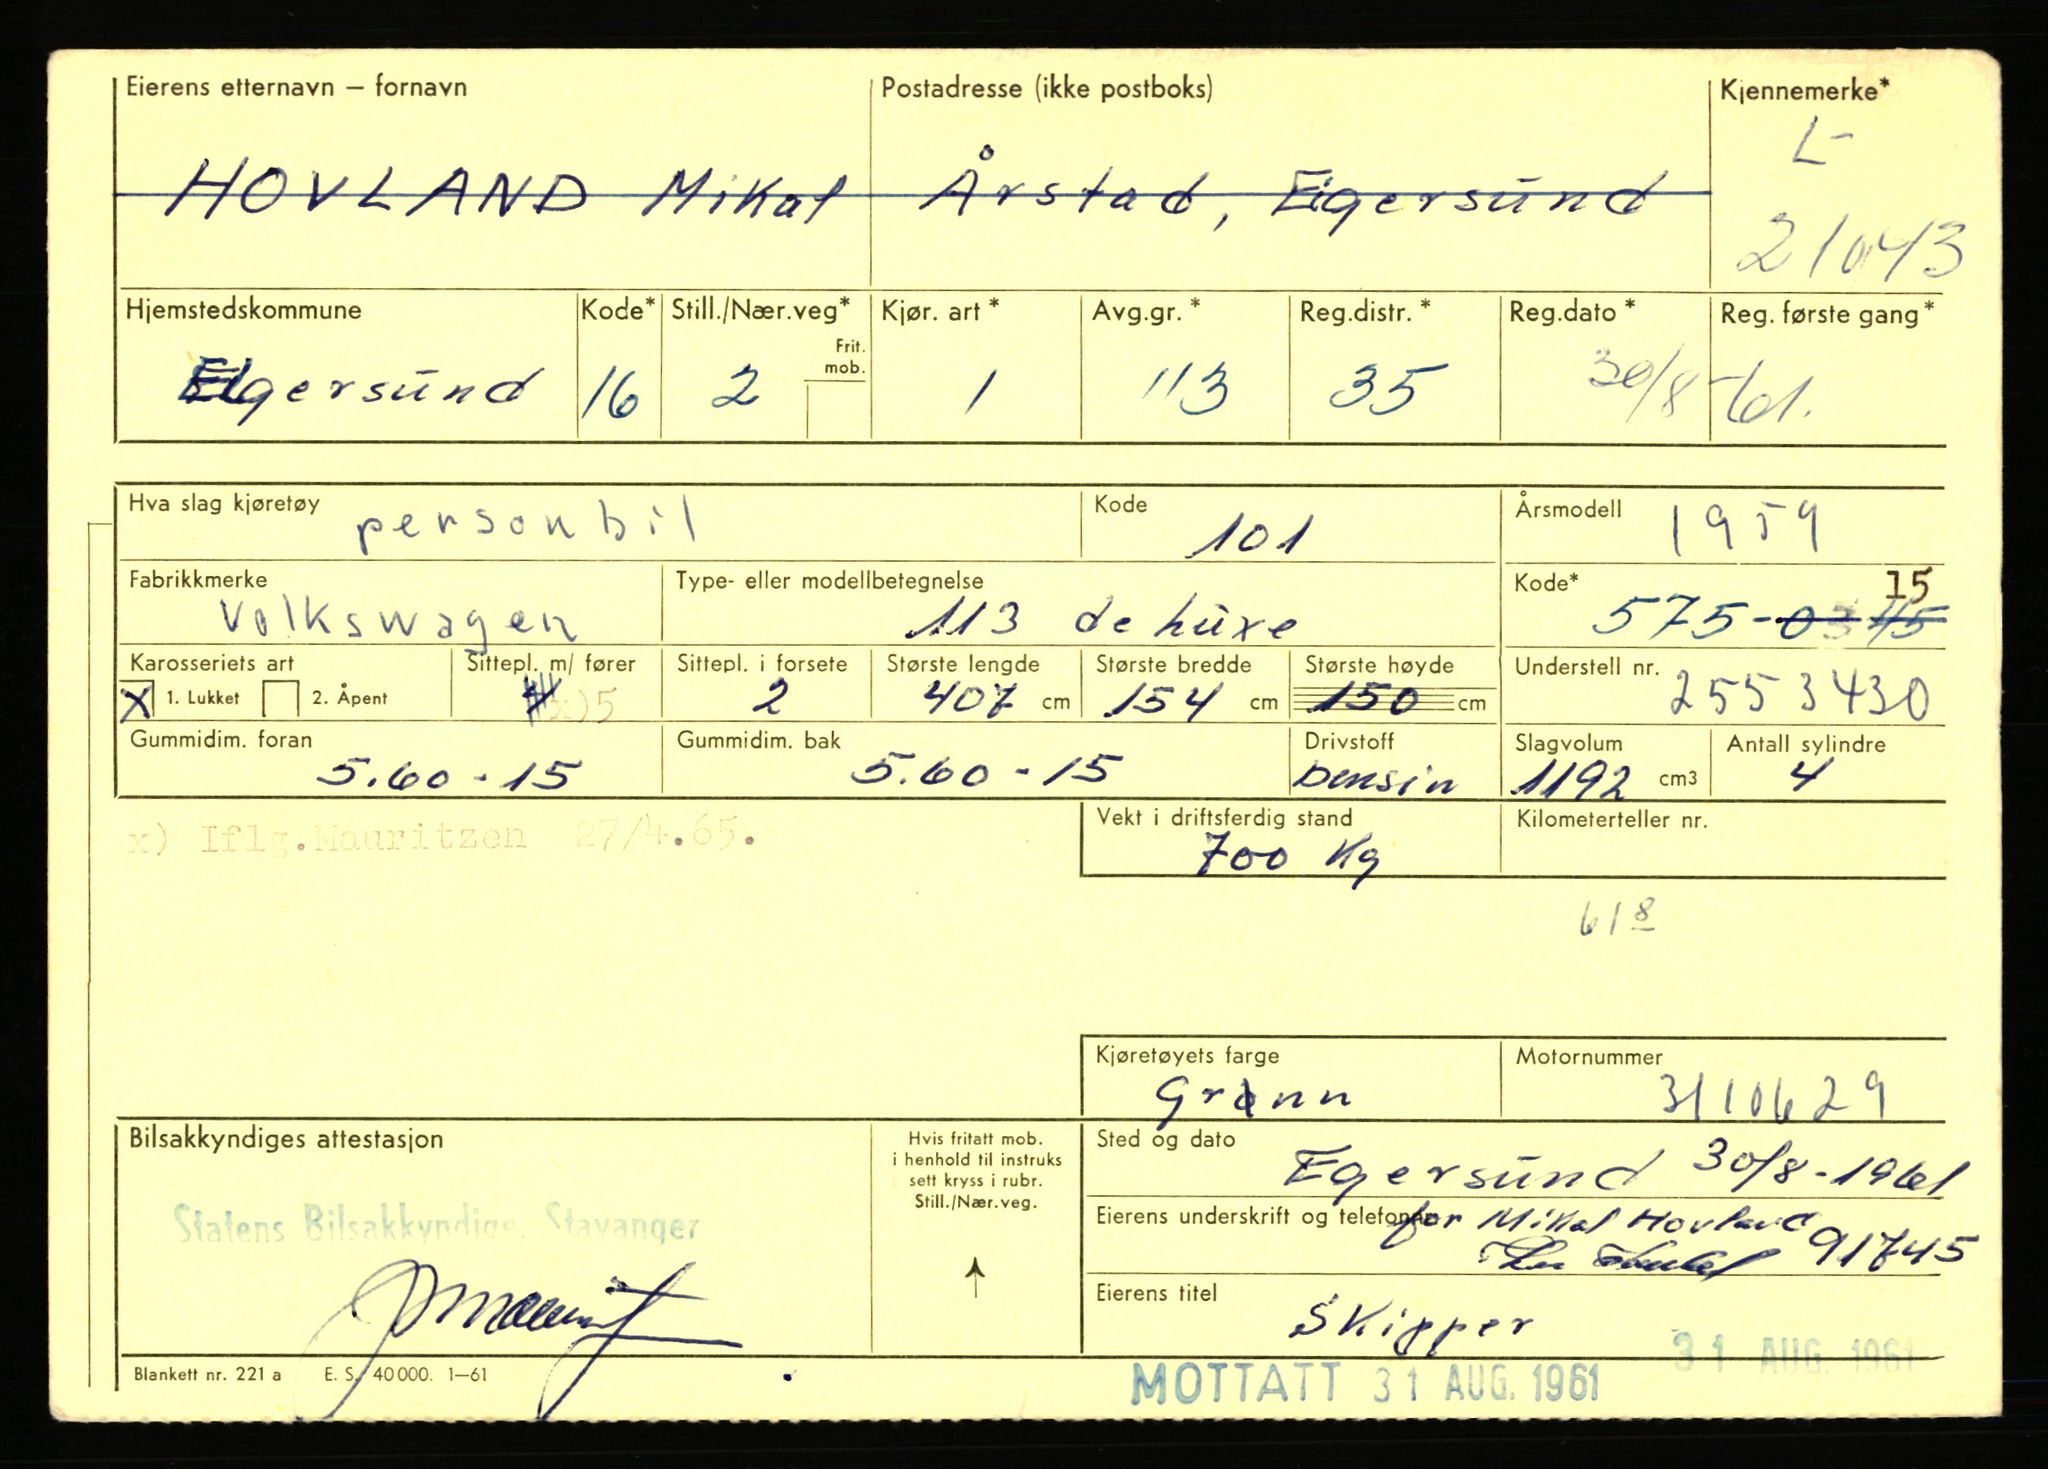 Eierens etternavn – fornavn Postadresse (ikke postboks) Kjennemerke*
L-
HOVLAND Mikal Årstad, Egersund
21043
Hjemstedskommune Kode* Still./Nær.veg* Kjør. art* Avg.gr.* Reg.distr.* Reg.dato* Reg. første gang*
Frit.
mob.
Egersund 16 2 1 113 35 30/8-61.
Hva slag kjøretøy Kode Årsmodell
personbil 101 1959
Fabrikkmerke Type- eller modellbetegnelse Kode* 15
Volkswagen 113 de luxe 575-03 45
Karosseriets art Sittepl. m/ fører Sittepl. i forsete Største lengde Største bredde Største høyde Understell nr.
X 1. Lukket 2. Åpent x)5 2 407 cm 154 cm 150 cm 2553430
Gummidim. foran Gummidim. bak Drivstoff Slagvolum Antall sylindre
5.60-15 5.60-15 bensin 1192 cm3 4
x) Iflg.Mauritzen 27/4.65.
Vekt i driftsferdig stand Kilometerteller nr.
700 kg
61 8
Kjøretøyets farge Motornummer
Grønn 3110629
Bilsakkyndiges attestasjon
Hvis fritatt mob.
i henhold til instruks
sett kryss i rubr.
Still./Nær.veg.
Statens Bilsakkyndige, Stavanger
Sted og dato
Egersund 30/8-1961
Eierens underskrift og telefonnr
for Mikal Hovland
91745
Eierens titel
Skipper
31 AUG. 1961
Blankett nr. 221 a E. S. 40 000. 1–61
MOTTATT 31 AUG. 1961